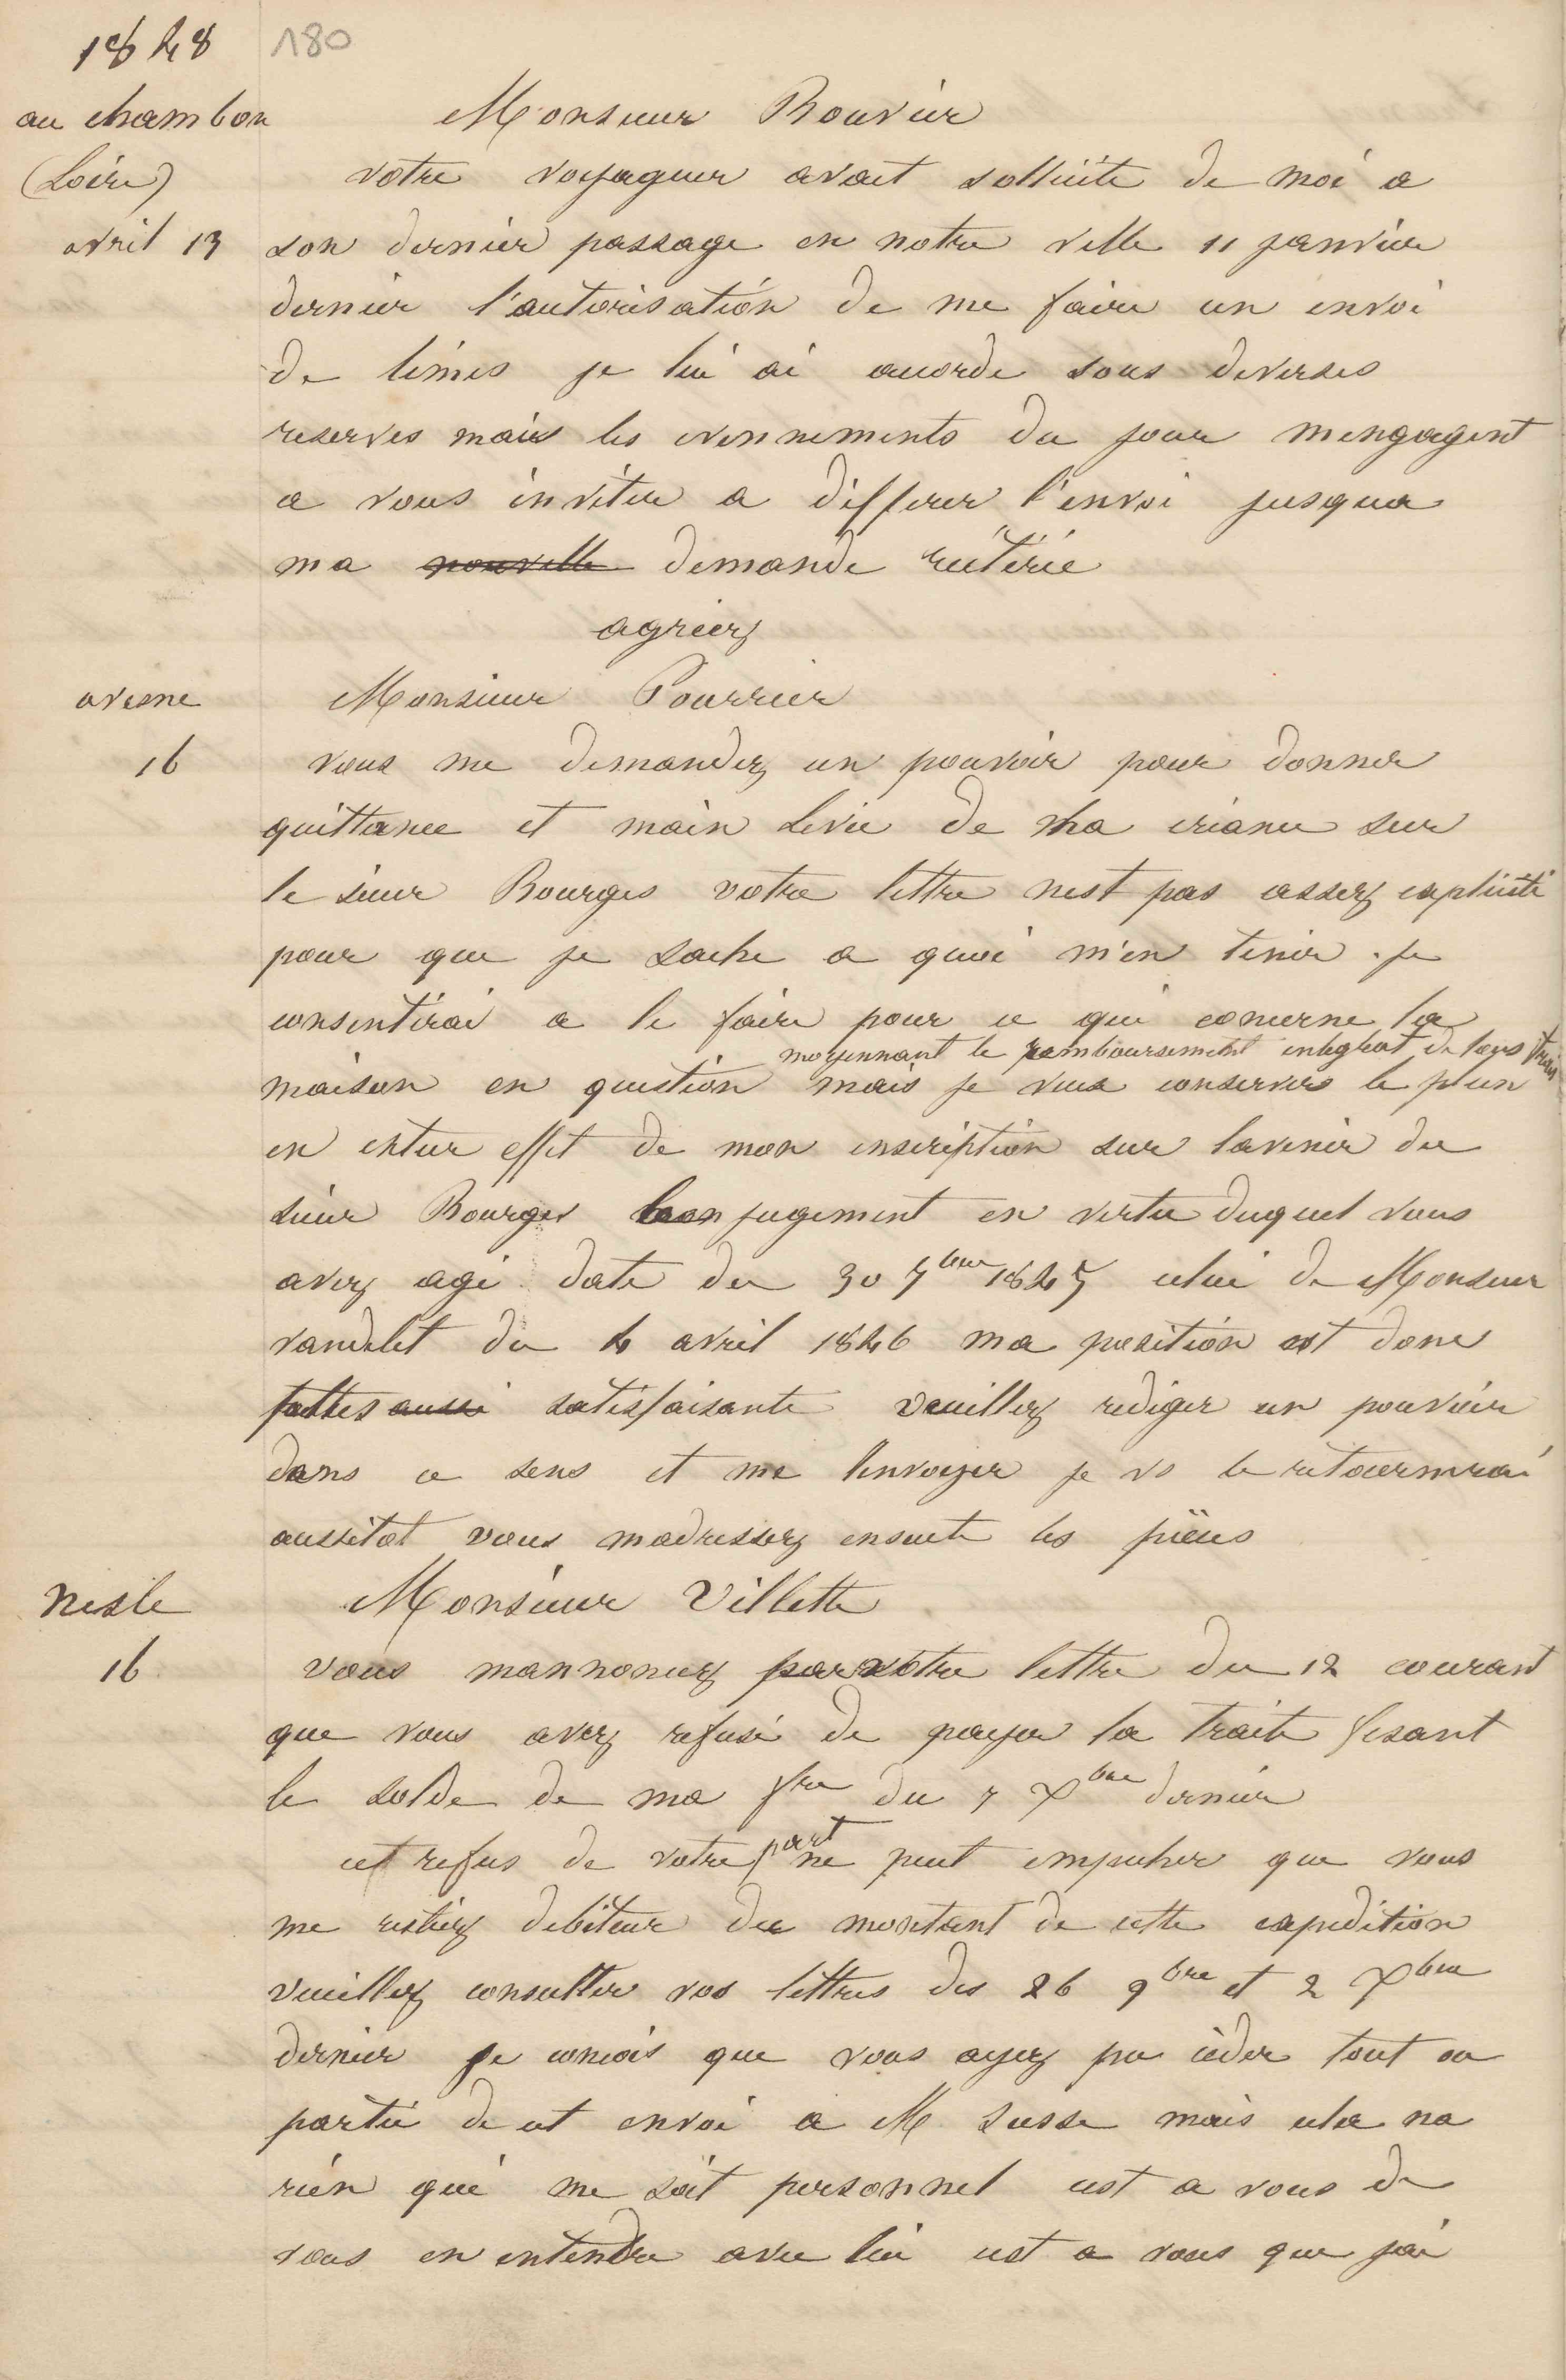 1848
180
au chambon
(Loire)
avril 13
Monsieur Bouvier
votre voyageur avait sollicite de moi a
son dernier passage en notre ville 11 janvier
dernier l'autorisation de me faire un envoi
de limes je lui ai accorde sous diverses
reserves mais les evennements du jour mengagent
a vous inviter a differer l'envoi jusqua
ma nouvelle demande reiterée
agreez
avesne
16
Monsieur Pourrier
vous me demandez un pouvoir pour donner
quittance et main levée de ma créance sur
le sieur Bourges votre lettre nest pas assez explicite
pour que je sache a quoi m'en tenir. je
consentirai a le faire pour ce qui concerne la
moyennant le remboursement integral de tous frais
maison en question mais je veux conserver le plein
en entier effet de mon inscription sur lavenir du
sieur Bourges jugement en vertu duquel vous
avez agi date du 30 7bre 1845 celui de Monsieur
vandelet du 4 avril 1846 ma position est donc
aussi satisfaisante veuillez rediger un pouvoir
dans ce sens et me lenvoyer je vs le retournerai
aussitot vous madressez ensuite les pièces
Nesle
16
Monsieur Villette
vous mannoncez par votre lettre du 12 courant
que vous avez refusé de payer la traite fesant
le solde de ma fre du 7 Xbre dernier
cet refus de votre part ne peut empecher que vous
me restiez debiteur du montant de cette expedition
veuillez consulter vos lettres des 26 9bre et 2 Xbre
dernier je concois que vous ayez pu céder tout ou
partie de cet envoi a M Susse mais cela na
rien qui me soit personnel cest a vous de
vous en entendre avec lui cest a vous que jai